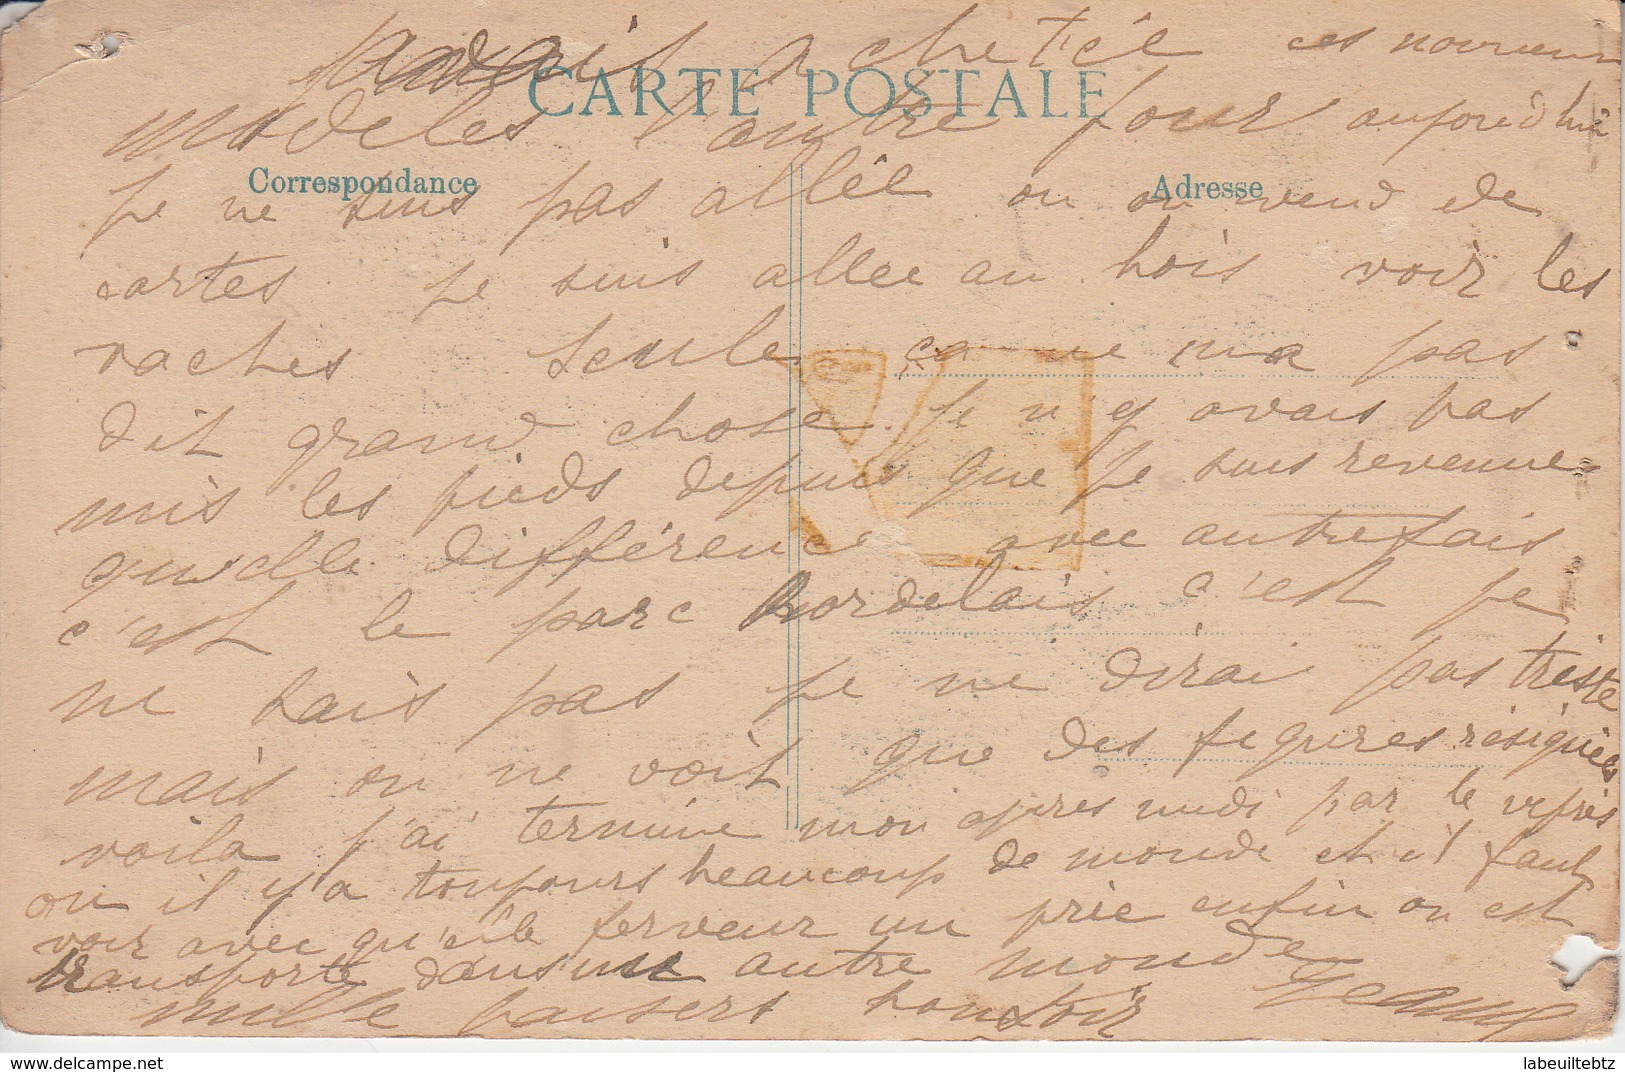 j'avais achetée ces nouveaux
CARTE POSTALE
modeles l'autre jour aujourd'hui
Correspondance
Adresse
je ne suis pas allée ou on vend de
cartes je suis allee au bois voir les
vaches seule ça ne ma pas
dit grand chose je n'y avais pas
mis les pieds depuis que je suis revenue
quelle différence avec autrefois
c'est le parc Bordelais c'est je
ne sais pas je ne dirai pas triste
mais on ne voit que des figures résignées
voila j'ai termine mon apres midi par le vepres
ou il y a toujours beaucoup de monde et il faut
voir avec qu'elle ferveur on prie enfin on est
transporte dans un autre monde
mille baisers bonsoir Jeanne
delcampe.net
labeuiltebtz